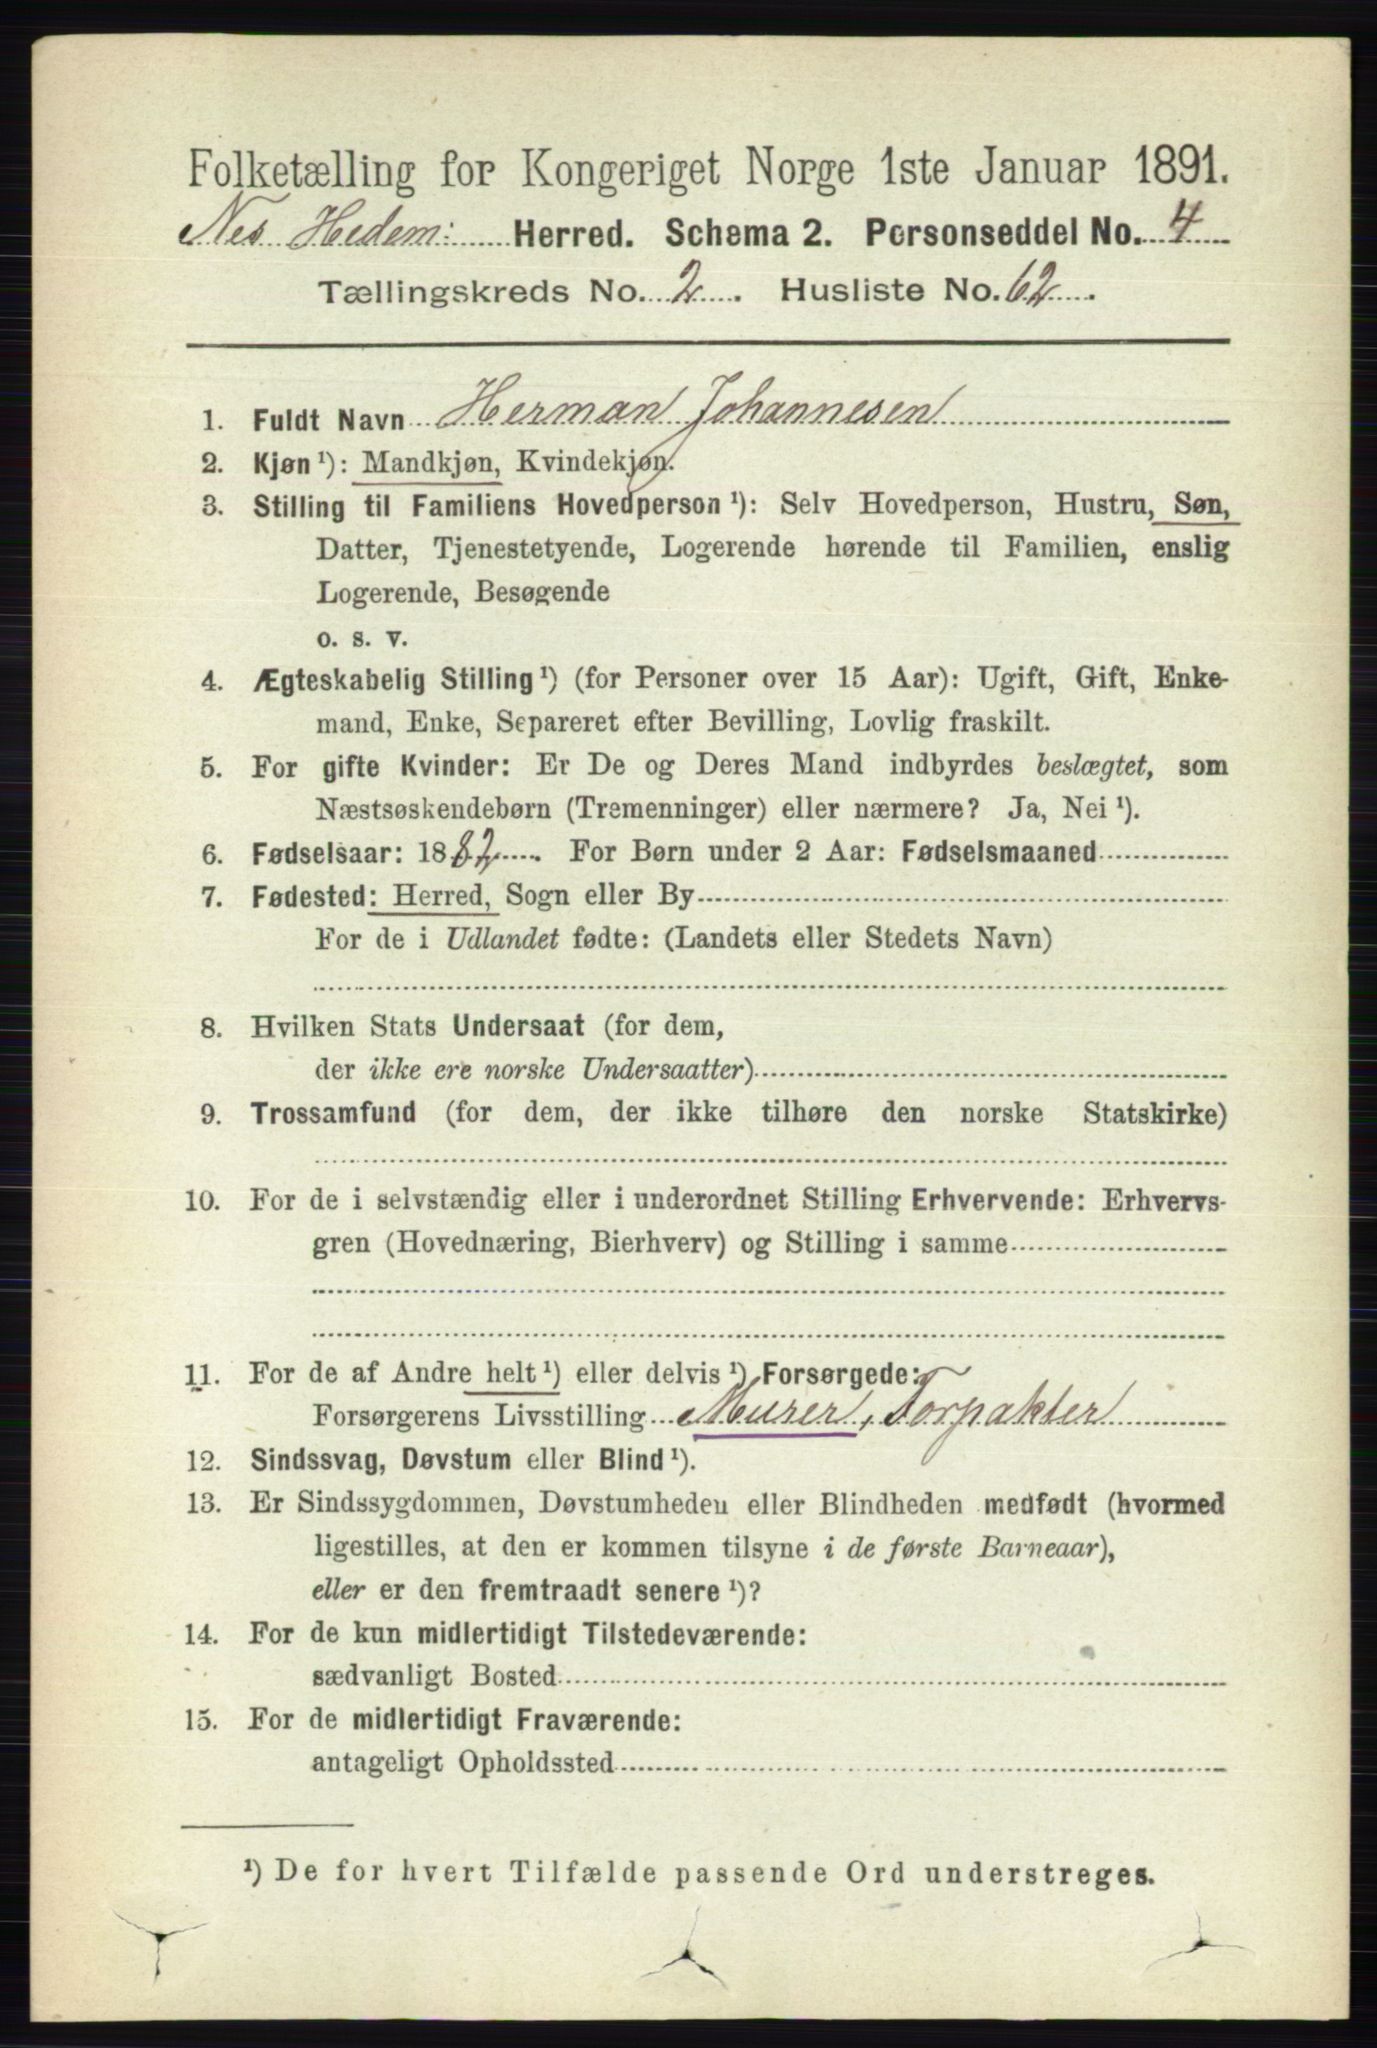 Folketælling for Kongeriget Norge 1ste Januar 1891.
Nes Hedem: Herred. Schema 2. Personseddel No. 4
Tællingskreds No. 2. Husliste No. 62.
1. Fuldt Navn Herman Johannesen
2. Kjøn ¹): Mandkjøn, Kvindekjøn.
3. Stilling til Familiens Hovedperson ¹): Selv Hovedperson, Hustru, Søn,
Datter, Tjenestetyende, Logerende hørende til Familien, enslig
Logerende, Besøgende
o. s. v.
4. Ægteskabelig Stilling ¹) (for Personer over 15 Aar): Ugift, Gift, Enke-
mand, Enke, Separeret efter Bevilling, Lovlig fraskilt.
5. For gifte Kvinder: Er De og Deres Mand indbyrdes beslægtet, som
Næstsøskendebørn (Tremenninger) eller nærmere? Ja, Nei ¹).
6. Fødselsaar: 1882. For Børn under 2 Aar: Fødselsmaaned
7. Fødested: Herred, Sogn eller By
For de i Udlandet fødte: (Landets eller Stedets Navn)
8. Hvilken Stats Undersaat (for dem,
der ikke ere norske Undersaatter)
9. Trossamfund (for dem, der ikke tilhøre den norske Statskirke)
10. For de i selvstændig eller i underordnet Stilling Erhvervende: Erhvervs-
gren (Hovednæring, Bierhverv) og Stilling i samme
11. For de af Andre helt ¹) eller delvis ¹) Forsørgede:
Forsørgerens Livsstilling Murer, Torpakter
12. Sindssvag, Døvstum eller Blind ¹).
13. Er Sindssygdommen, Døvstumheden eller Blindheden medfødt (hvormed
ligestilles, at den er kommen tilsyne i de første Barneaar),
eller er den fremtraadt senere ¹)?
14. For de kun midlertidigt Tilstedeværende:
sædvanligt Bosted
15. For de midlertidigt Fraværende:
antageligt Opholdssted
¹) De for hvert Tilfælde passende Ord understreges.